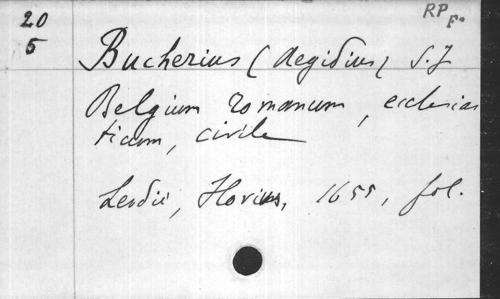 20
5
RP
F°
Bucherius (Aegidius) S.J
Belgium romanum, ecclesias
ticum, civile
Leodii, Hovius, 1655, fol.